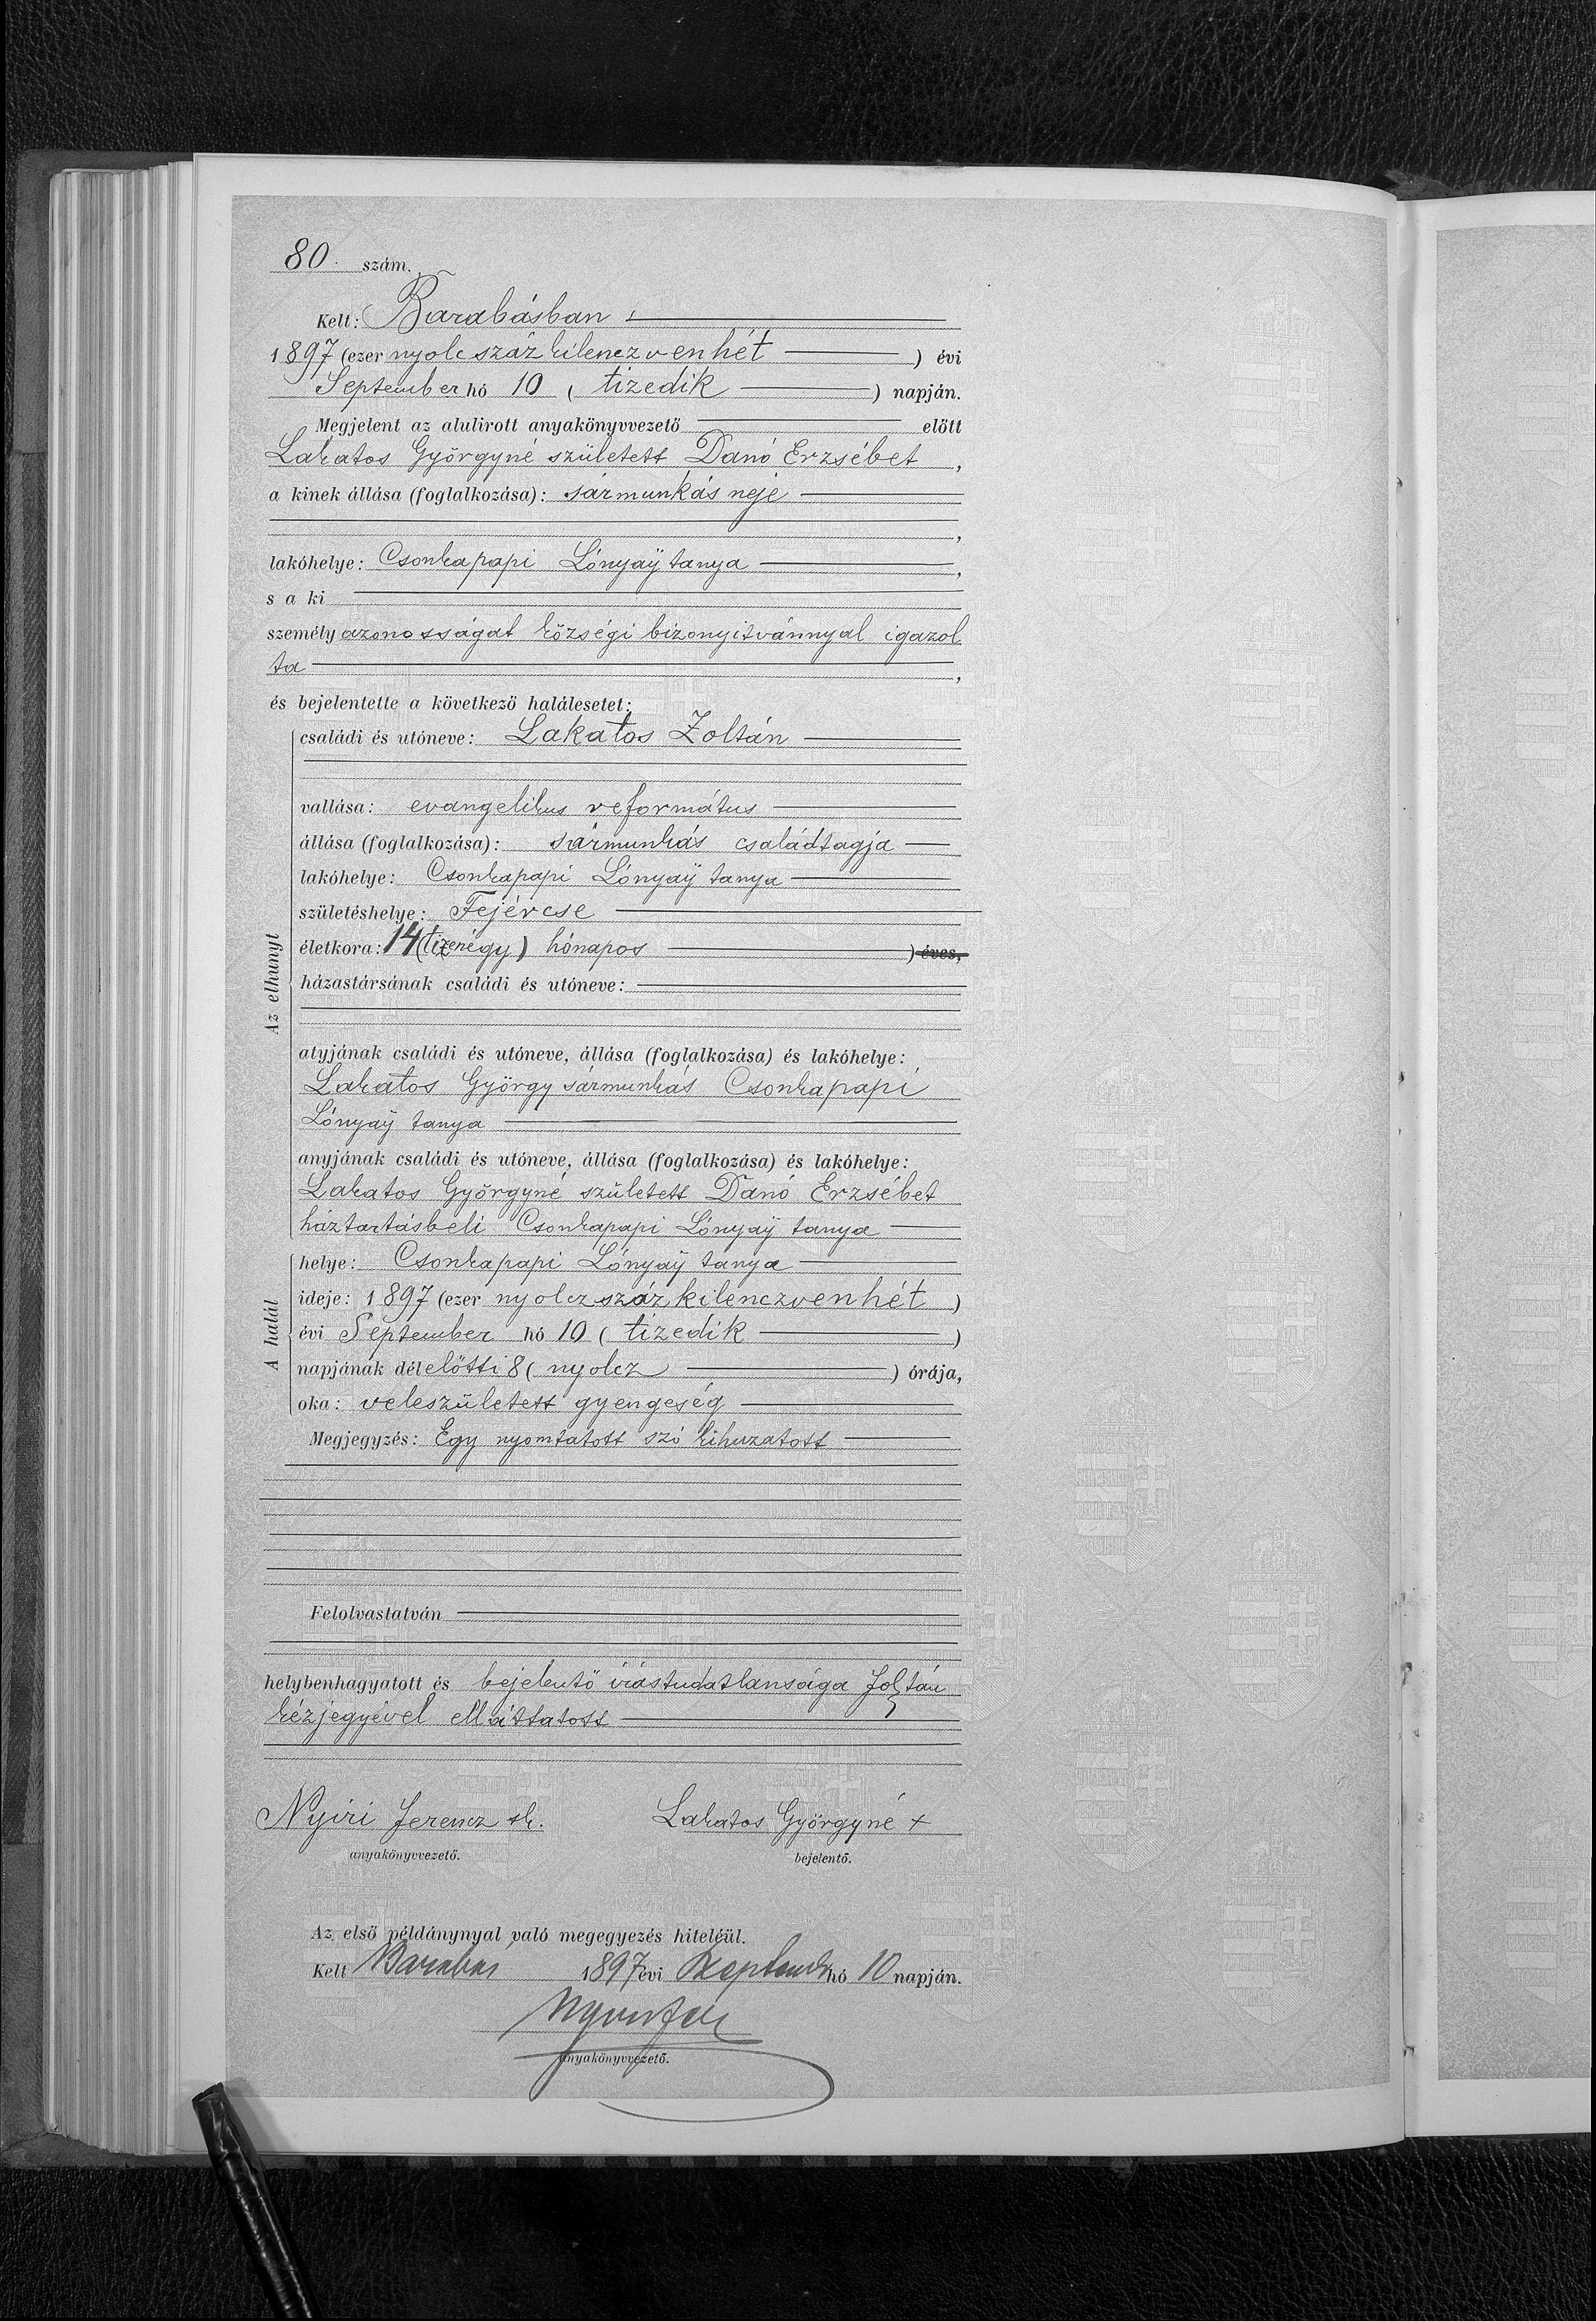 80. szám.
Kelt: Barabásban,
1897 (ezer nyolcszáz kilenczvenhét ) évi
September hó 10 ( tizedik ) napján.
Megjelent az alulirott anyakönyvvezető előtt
Lakatos Györgyné született Danó Erzsébet,
a kinek állása (foglalkozása): sármunkás neje
,
lakóhelye: Csonkapapi Lónyaÿ tanya,
s a ki
személyazonosságat községi bizonyitvánnyal igazol
ta,
és bejelentette a következő halálesetet:
Az elhunyt
családi és utóneve: Lakatos Zoltán
vallása: evangelikus református
állása (foglalkozása): sármunkás családtagja
lakóhelye: Csonkapapi Lónyaÿ tanya
születéshelye: Fejércse
életkora: 14 (tizenégy) hónapos ) éves,
házastársának családi és utóneve:
atyjának családi és utóneve, állása (foglalkozása) és lakóhelye:
Lakatos György sármunkás Csonkapapi
Lónyaÿ tanya
anyjának családi és utóneve, állása (foglalkozása) és lakóhelye:
Lakatos Györgyné született Danó Erzsébet
háztartásbeli Csonkapapi Lónyaÿ tanya
A halál
helye: Csonkapapi Lónyaÿ tanya
ideje: 1897 (ezer nyolczszáz kilenczvenhét )
évi September hó 10 ( tizedik )
napjának délelőtti 8 ( nyolcz ) órája,
oka: veleszületett gyengeség
Megjegyzés: Egy nyomtatott szó kihuzatott
Felolvastatván
helybenhagyatott és bejelentő irástudatlansága foltán
kézjegyével elláttatott
Nyiri Ferencz sk. Lakatos Györgyné +
anyakönyvvezető. bejelentő.
Az első példánynyal való megegyezés hiteléül.
Kelt Barabás 1897 évi September hó 10 napján.
anyakönyvvezető.